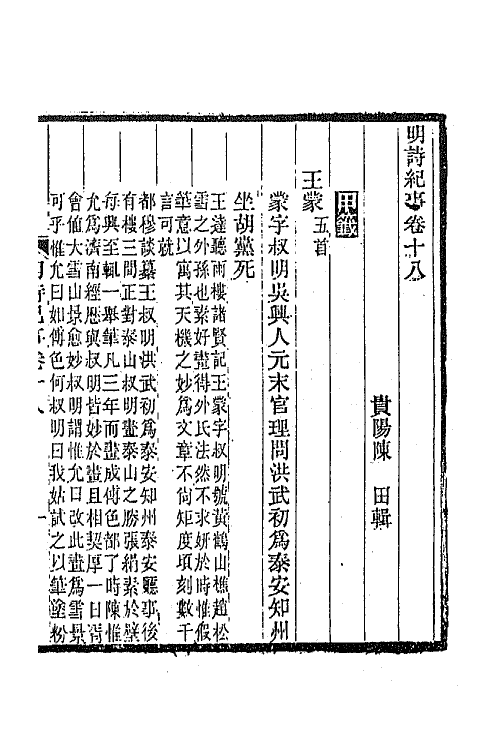 明詩紀事卷十八
貴陽陳　田輯
甲籤
王蒙五首
蒙字叔明吳興人元末官理問洪武初爲泰安知州
坐胡黨死
王達聽雨樓諸賢記王蒙字叔明號黃鶴山樵趙松
雪之外孫也素好畫得外氏法然不求妍於時惟假
筆意以寓其天機之妙爲文章不尙矩度頃刻數千
言可就
都穆談纂王叔明洪武初爲泰安知州泰安廳事後
有樓三間正對泰山叔明畫泰山之勝張絹素於壁
每興至輒一舉筆凡三年而畫成傅色都了時陳惟
允爲濟南經歷與叔明皆妙於畫且相契厚一日胥
會値大雪山景愈妙叔明謂惟允曰改此畫爲雪景
可乎惟允曰如傅色何叔明曰我姑試之以筆塗粉
明詩紀事卷十八　一